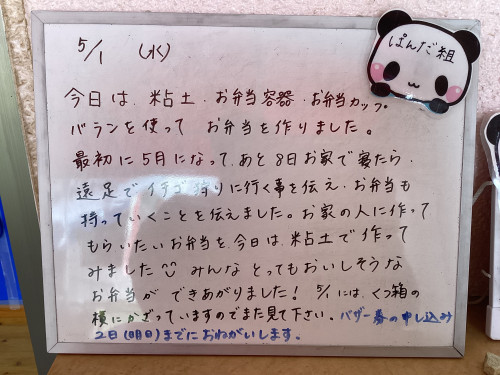 5/1 (水)
ぱんだ組
今日は、粘土・お弁当容器・お弁当カップ。
バランを使って お弁当を作りました。
最初に5月になって、あと8日お家で寝たら、
遠足でイチゴ狩りに行く事を伝え・お弁当も
持っていくことを伝えました。お家の人に作って
もらいたいお弁当を、今日は、粘土で作って
みました みんな とってもおいしそうな
お弁当が できあがりました! 5/1には、くつ箱の
横にかざっていますのでまた見て下さい。バザー券の申し込み
2日(明日)までにおねがいします。